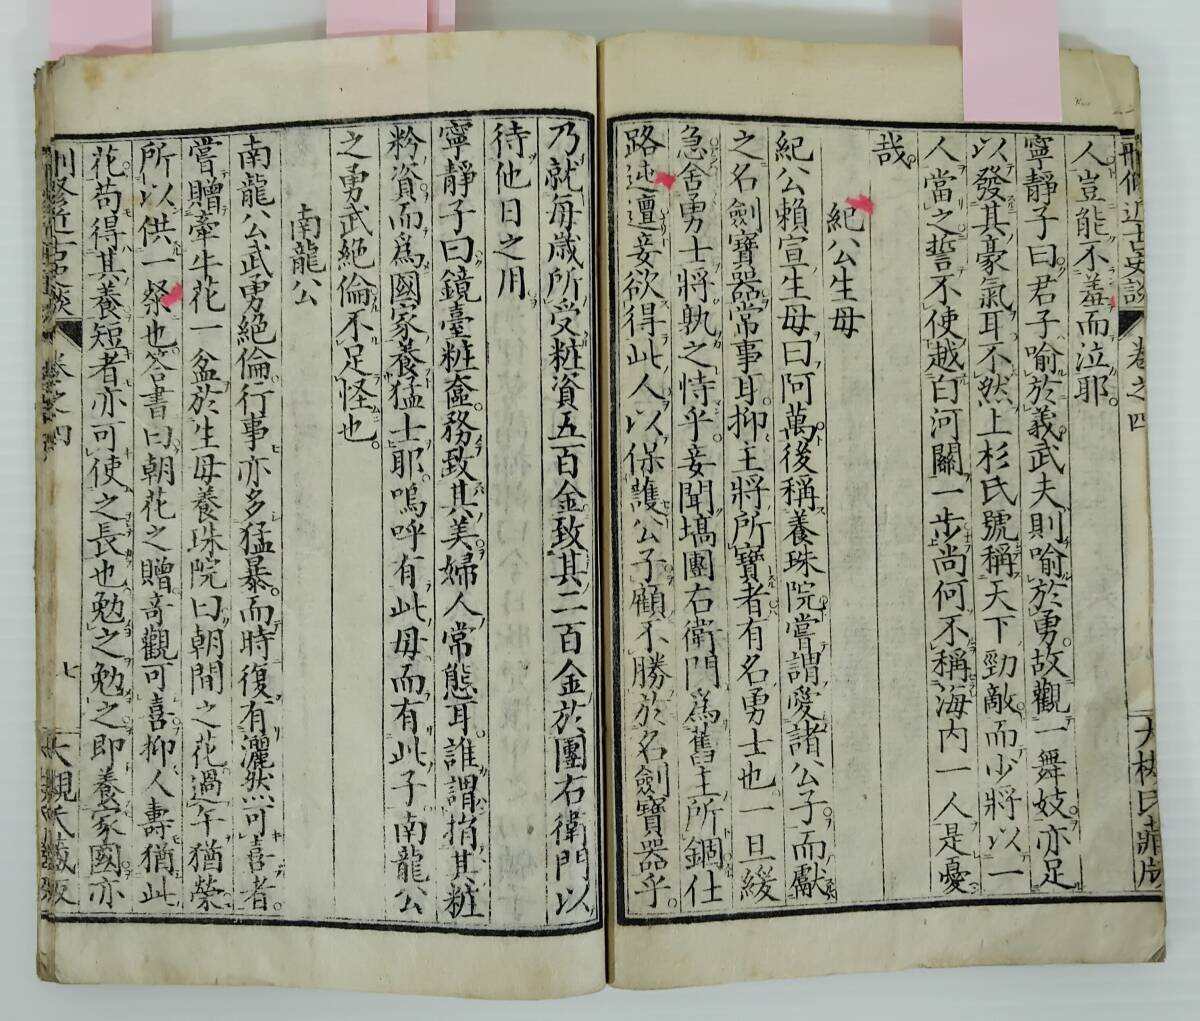 刪修近古史談 卷之四 大槻氏藏版
人豈能不羞而泣耶
寧靜子曰君子喻於義武夫則喻於勇故觀一舞妓亦足
以發其豪氣耳不然上杉氏號稱天下勁敵而少將以一
人當之誓不使越白河關一步尚何不稱海內一人是憂
哉
紀公生母
紀公賴宣生母曰阿萬後稱養珠院嘗謂愛諸公子而獻
之名劍寶器常事耳抑主將所寶者有名勇士也一旦緩
急舍勇士將孰之恃乎妾聞塙團右衛門為舊主所錮仕
路迍邅妾欲得此人以保護公子顧不勝於名劍寶器乎
乃就每歲所受粧資五百金致其二百金於團右衛門以
待他日之用
寧靜子曰鏡臺粧奩務致其美婦人常態耳誰謂捐其粧
粉資而爲國家養猛士耶嗚呼有此母而有此子南龍公
之勇武絕倫不足怪也
南龍公
南龍公武勇絕倫行事亦多猛暴而時復有灑然可喜者
嘗贈牽牛花一盆於生母養珠院曰朝間之花過午猶榮
所以供一粲也答書曰朝花之贈奇觀可喜抑人壽猶此
花苟得其養短者亦可使之長也勉之勉之即養家國亦
刪修近古史談 卷之四 七 大槻氏藏版